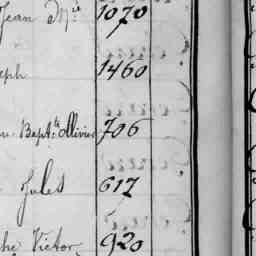 Jean M.ie 1070
eph 1460
n Bapt.te Ollivier 706
Jules 617
he Victor 920